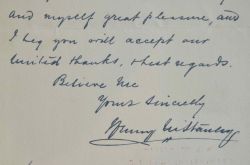 and myself great pleasure, and
I beg you will accept our
united thanks, & best regards.
Believe me
Yours Sincerely
Henry M Stanley